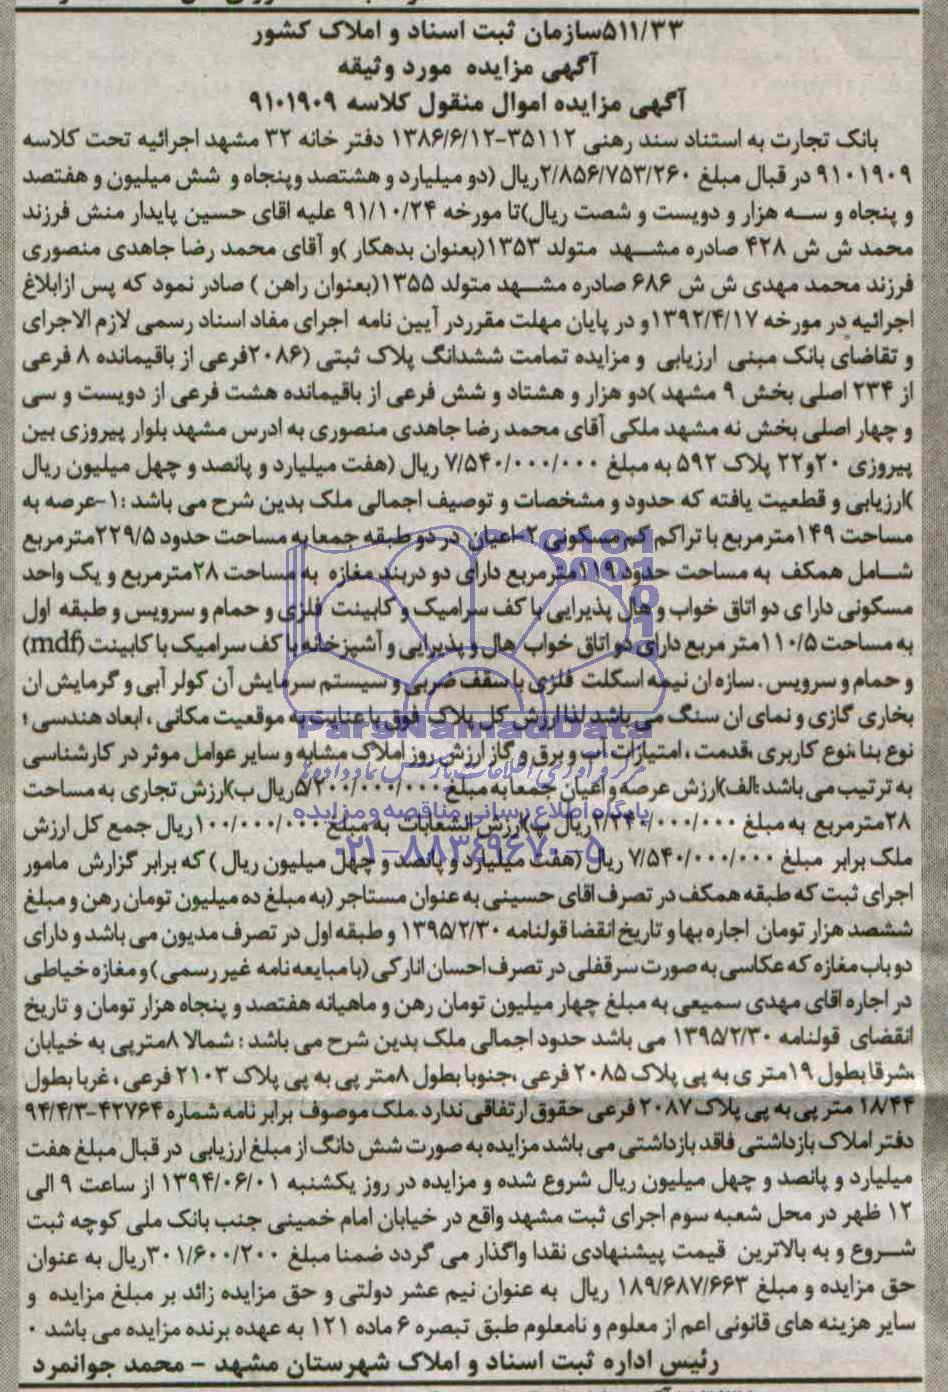 ۵۱۱/۳۳سازمان ثبت اسناد و املاک کشور
آگهی مزایده مورد وثیقه
آگهی مزایده اموال منقول کلاسه ۹۱۰۱۹۰۹
بانک تجارت به استناد سند رهنی ۳۵۱۱۲-۱۳۸۶/۶/۱۲ دفتر خانه ۳۲ مشهد اجرائیه تحت کلاسه
۹۱۰۱۹۰۹ در قبال مبلغ ۲/۸۵۶/۷۵۳/۲۶۰ریال (دو میلیارد و هشتصد وپنجاه و شش میلیون و هفتصد
و پنجاه و سه هزار و دویست و شصت ریال)تا مورخه ۹۱/۱۰/۲۴ علیه اقای حسین پایدار منش فرزند
محمد ش ش ۴۲۸ صادره مشهد متولد ۱۳۵۳(بعنوان بدهکار )و آقای محمد رضا جاهدی منصوری
فرزند محمد مهدی ش ش ۶۸۶ صادره مشهد متولد ۱۳۵۵(بعنوان راهن ) صادر نمود که پس ازابلاغ
اجرائیه در مورخه ۱۳۹۲/۴/۱۷و در پایان مهلت مقرردر آیین نامه اجرای مفاد اسناد رسمی لازم الاجرای
و تقاضای بانک مبنی ارزیابی و مزایده تمامت ششدانگ پلاک ثبتی (۲۰۸۶فرعی از باقیمانده ۸ فرعی
از ۲۳۴ اصلی بخش ۹ مشهد )دو هزار و هشتاد و شش فرعی از باقیمانده هشت فرعی از دویست و سی
و چهار اصلی بخش نه مشهد ملکی آقای محمد رضا جاهدی منصوری به ادرس مشهد بلوار پیروزی بین
پیروزی ۲۰و۲۲ پلاک ۵۹۲ به مبلغ ۷/۵۴۰/۰۰۰/۰۰۰ ریال (هفت میلیارد و پانصد و چهل میلیون ریال
)ارزیابی و قطعیت یافته که حدود و مشخصات و توصیف اجمالی ملک بدین شرح می باشد :۱-عرصه به
مساحت ۱۴۹مترمربع با تراکم کم مسکونی ۲-اعیان در دو طبقه جمعا به مساحت حدود ۲۲۹/۵مترمربع
شامل همکف به مساحت حدود ۱۱۹مترمربع دارای دو دربند مغازه به مساحت ۲۸مترمربع و یک واحد
مسکونی دارا ی دو اتاق خواب و هال پذیرایی با کف سرامیک و کابینت فلزی و حمام و سرویس و طبقه اول
به مساحت ۱۱۰/۵متر مربع دارای دو اتاق خواب هال و پذیرایی و آشپزخانه با کف سرامیک با کابینت (mdf)
و حمام و سرویس . سازه ان نیمه اسکلت فلزی با سقف ضربی و سیستم سرمایش آن کولر آبی و گرمایش ان
بخاری گازی و نمای ان سنگ می باشد لذا ارزش کل پلاک فوق با عنایت به موقعیت مکانی ، ابعاد هندسی ؛
نوع بنا ،نوع کاربری ،قدمت ، امتیازات آب و برق و گاز ارزش روز املاک مشابه و سایر عوامل موثر در کارشناسی
به ترتیب می باشد :الف)ارزش عرصه و اعیان جمعا به مبلغ ۵/۲۰۰/۰۰۰/۰۰۰ریال ب)ارزش تجاری به مساحت
۲۸مترمربع به مبلغ ۲/۲۴۰/۰۰۰/۰۰۰ریال پ)ارزش انشعابات به مبلغ ۱۰۰/۰۰۰/۰۰۰ریال جمع کل ارزش
ملک برابر مبلغ ۷/۵۴۰/۰۰۰/۰۰۰ ریال (هفت میلیارد و پانصد و چهل میلیون ریال ) که برابر گزارش مامور
اجرای ثبت که طبقه همکف در تصرف اقای حسینی به عنوان مستاجر (به مبلغ ده میلیون تومان رهن و مبلغ
ششصد هزار تومان اجاره بها و تاریخ انقضا قولنامه ۱۳۹۵/۲/۳۰ و طبقه اول در تصرف مدیون می باشد و دارای
دو باب مغازه که عکاسی به صورت سرقفلی در تصرف احسان انارکی (با مبایعه نامه غیر رسمی ) و مغازه خیاطی
در اجاره اقای مهدی سمیعی به مبلغ چهار میلیون تومان رهن و ماهیانه هفتصد و پنجاه هزار تومان و تاریخ
انقضای قولنامه ۱۳۹۵/۲/۳۰ می باشد حدود اجمالی ملک بدین شرح می باشد : شمالا ۸مترپی به خیابان
،شرقا بطول ۱۹متر ی به پی پلاک ۲۰۸۵ فرعی ،جنوبا بطول ۸متر پی به پی پلاک ۲۱۰۳ فرعی ، غربا بطول
۱۸/۴۴ متر پی به پی پلاک ۲۰۸۷ فرعی حقوق ارتفاقی ندارد .ملک موصوف برابر نامه شماره ۴۲۷۶۴-۹۴/۴/۳
دفتر املاک بازداشتی فاقد بازداشتی می باشد مزایده به صورت شش دانگ از مبلغ ارزیابی در قبال مبلغ هفت
میلیارد و پانصد و چهل میلیون ریال شروع شده و مزایده در روز یکشنبه ۱۳۹۴/۰۶/۰۱ از ساعت ۹ الی
۱۲ ظهر در محل شعبه سوم اجرای ثبت مشهد واقع در خیابان امام خمینی جنب بانک ملی کوچه ثبت
شروع و به بالاترین قیمت پیشنهادی نقدا واگذار می گردد ضمنا مبلغ ۳۰۱/۶۰۰/۲۰۰ریال به عنوان
حق مزایده و مبلغ ۱۸۹/۶۸۷/۶۶۳ ریال به عنوان نیم عشر دولتی و حق مزایده زائد بر مبلغ مزایده و
سایر هزینه های قانونی اعم از معلوم و نامعلوم طبق تبصره ۶ ماده ۱۲۱ به عهده برنده مزایده می باشد ۰
رئیس اداره ثبت اسناد و املاک شهرستان مشهد - محمد جوانمرد
ParsNamadData
پایگاه اطلاع رسانی مناقصه و مزایده
۰۲۱-۸۸۳۴۹۶۷۰-۵